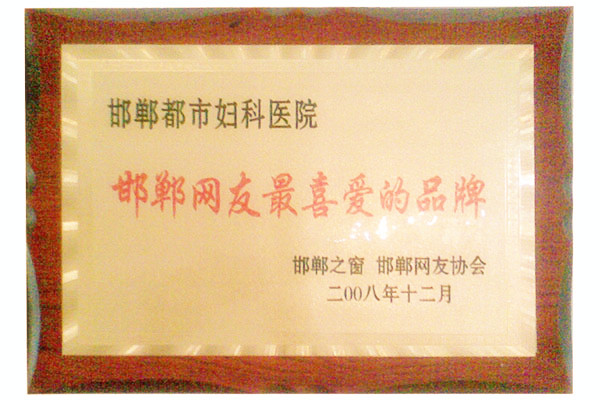 邯郸都市妇科医院
邯郸网友最喜爱的品牌
邯郸之窗 邯郸网友协会
二00八年十二月